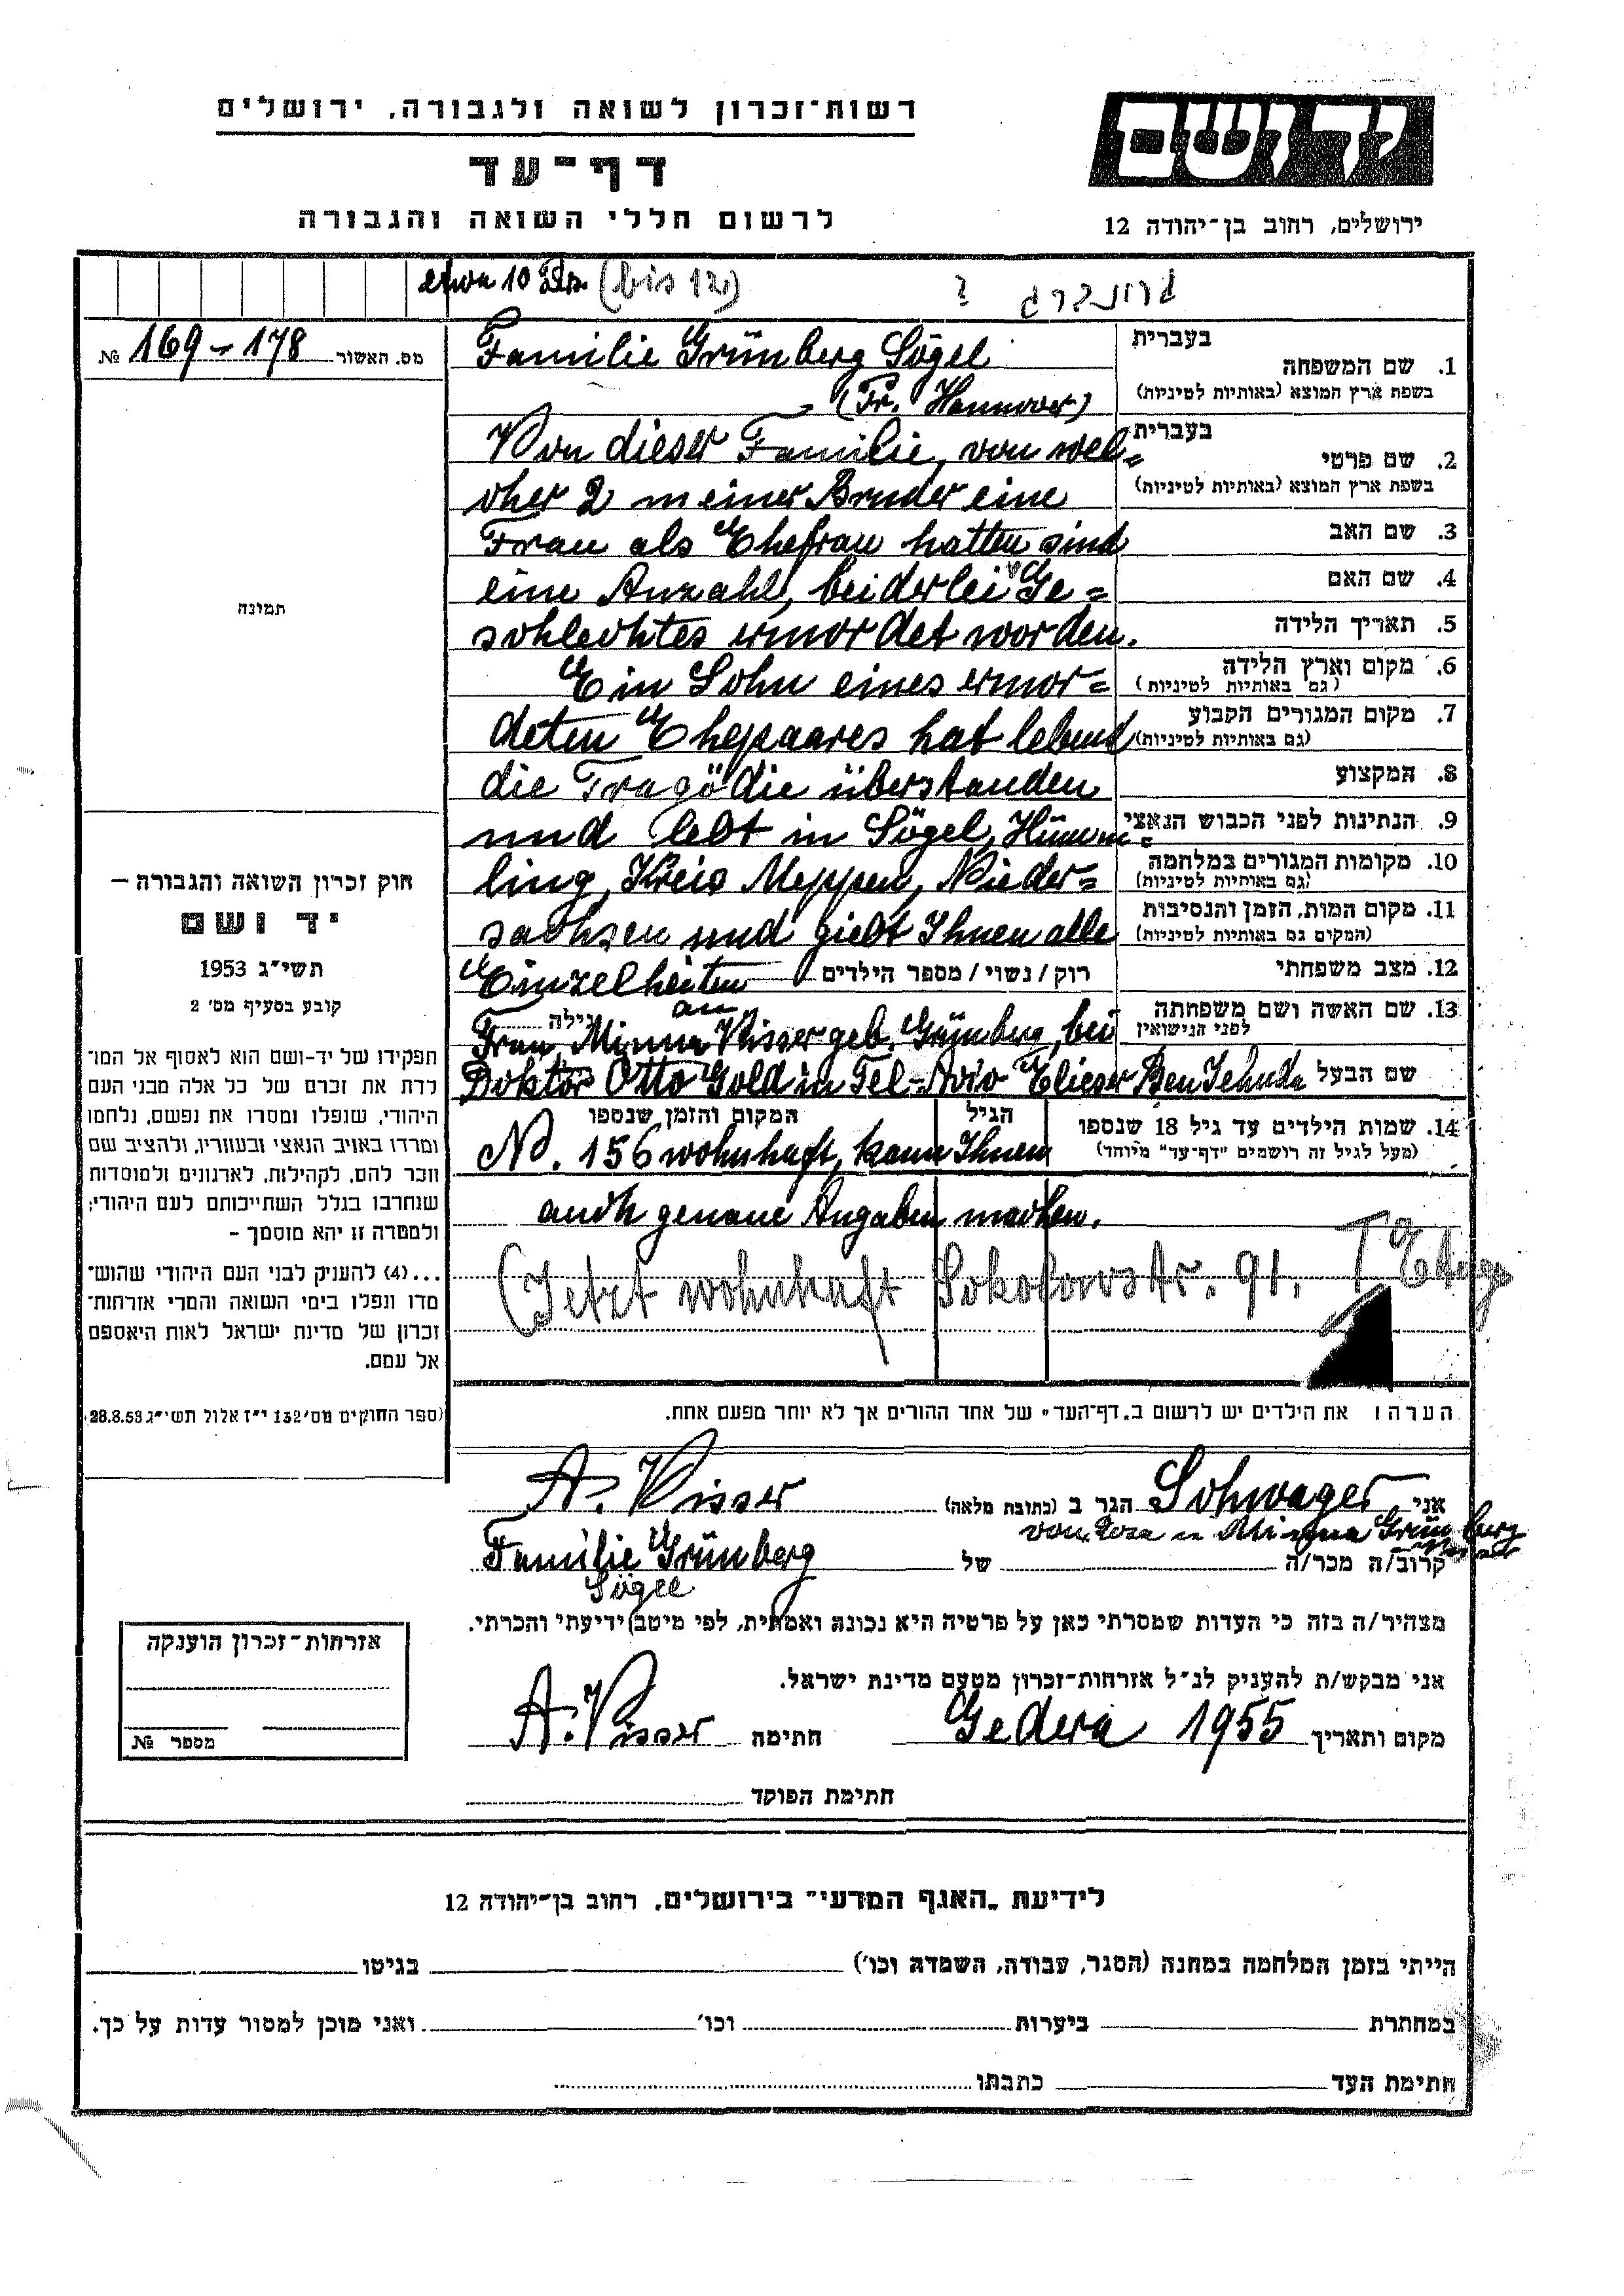 רשות־זכרון לשואה ולגבורה, ירושלים
יד ושם
דף־עד
לרשום חללי השואה והגבורה
ירושלים, רחוב בן־יהודה 12
etwa 10 (bis 12)
גרונברג ?
מס. האשור № 169-178
בעברית
1. שם המשפחה
בשפת ארץ המוצא (באותיות לטיניות)
Familie Grünberg Sögel
(Pr. Hannover)
בעברית
2. שם פרטי
בשפת ארץ המוצא (באותיות לטיניות)
Von dieser Familie, von wel=
cher 2 meiner Bruder eine
3. שם האב
Frau als Ehefrau hatten sind
4. שם האם
eine Anzahl, beiderlei Ge=
5. תאריך הלידה
schlechtes ermordet worden.
6. מקום וארץ הלידה
(גם באותיות לטיניות)
Ein Sohn eines ermor=
7. מקום המגורים הקבוע
(גם באותיות לטיניות)
deten Ehepaares hat lebend
8. המקצוע
die Tragödie überstanden
9. הנתינות לפני הכבוש הנאצי
und lebt in Sögel, Hümm=
10. מקומות המגורים במלחמה
(גם באותיות לטיניות)
ling, Kreis Meppen, Nieder=
11. מקום המות, הזמן והנסיבות
(המקום גם באותיות לטיניות)
sachsen und giebt Ihnen alle
12. מצב משפחתי
רוק/נשוי/מספר הילדים
Einzelheiten
an
13. שם האשה ושם משפחתה
לפני הנישואין
גילה
Frau Minna Visser geb. Grünberg, bei
שם הבעל
Doktor Otto Gold in Tel-Aviv Elieser Ben Jehuda
14. שמות הילדים עד גיל 18 שנספו
(מעל לגיל זה רושמים "דף־עד" מיוחד)
הגיל
המקום והזמן שנספו
No. 156 wohnhaft, kann Ihnen
auch genaue Angaben machen.
(Jetzt wohnhaft Sokolowstr. 91. I Etage
תמונה
חוק זכרון השואה והגבורה –
יד ושם
תשי"ג 1953
קובע בסעיף מס' 2
תפקידו של יד-ושם הוא לאסוף אל המו־
לדת את זכרם של כל אלה מבני העם
היהודי, שנפלו ומסרו את נפשם, נלחמו
ומרדו באויב הנאצי ובעוזריו, ולהציב שם
וזכר להם, לקהילות, לארגונים ולמוסדות
שנחרבו בגלל השתייכותם לעם היהודי;
ולמטרה זו יהא מוסמך –
...(4) להעניק לבני העם היהודי שהוש־
מדו ונפלו בימי השואה והמרי אזרחות־
זכרון של מדינת ישראל לאות היאספם
אל עמם.
(ספר החוקים מס' 132 י"ז אלול תשי"ג 28.8.53)
הערה: את הילדים יש לרשום ב„דף־העד" של אחד ההורים אך לא יותר מפעם אחת.
אני Schwager הגר ב (כתובת מלאה) A. Visser
von Rosa u Minna Grünberg
קרוב/ה מכר/ה של Familie Grünberg
Sögel
מצהיר/ה בזה כי העדות שמסרתי כאן על פרטיה היא נכונה ואמתית, לפי מיטב ידיעתי והכרתי.
אני מבקש/ת להעניק לנ"ל אזרחות־זכרון מטעם מדינת ישראל.
מקום ותאריך Gedera 1955 חתימה A. Visser
חתימת הפוקד
אזרחות־זכרון הוענקה
מספר №
לידיעת „האגף המדעי" בירושלים, רחוב בן־יהודה 12
הייתי בזמן המלחמה במחנה (הסגר, עבודה, השמדה וכו') בגיטו
במחתרת ביערות וכו' ואני מוכן למסור עדות על כך.
חתימת העד כתבתו